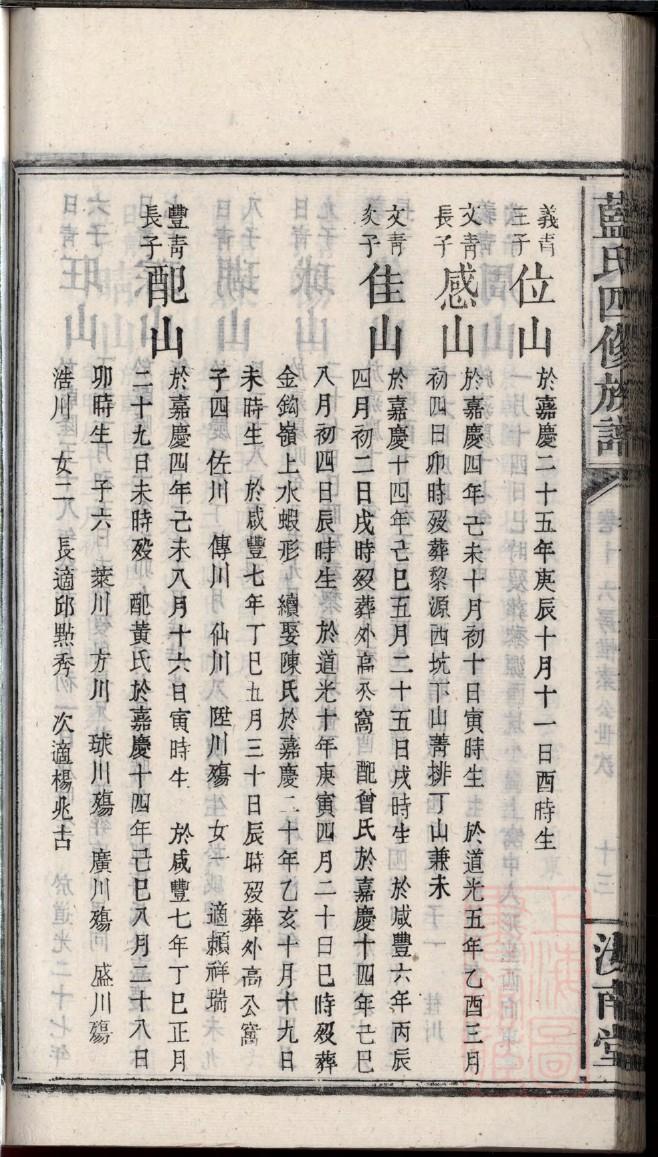 藍氏四修族譜
汝南堂
義青
三子
位山
於嘉慶二十五年庚辰十月十一日酉時生
文青
長子
感山
於嘉慶四年己未十月初十日寅時生 於道光五年乙酉三月
初四日卯時歿葬黎源西坑下山菁排丁山兼未
文青
次子
佳山
於嘉慶十四年己巳五月二十五日戌時生 於咸豐六年丙辰
四月初二日戌時歿葬外高公窩 配曾氏於嘉慶十四年己巳
八月初四日辰時生 於道光十年庚寅四月二十日巳時歿葬
金鈎嶺上水蝦形 續娶陳氏於嘉慶二十年乙亥十月十九日
未時生 於咸豐七年丁巳五月三十日辰時歿葬外高公窩
子四 佐川 傳川 仙川 陞川殤 女一 適賴祥瑞
豐青
長子
配山
於嘉慶四年己未八月十六日寅時生 於咸豐七年丁巳正月
二十九日未時歿 配黃氏於嘉慶十四年己巳八月二十八日
卯時生 子六 萊川 方川 球川殤 廣川殤 盛川殤
浩川 女二 長適邱點秀 次適楊兆古